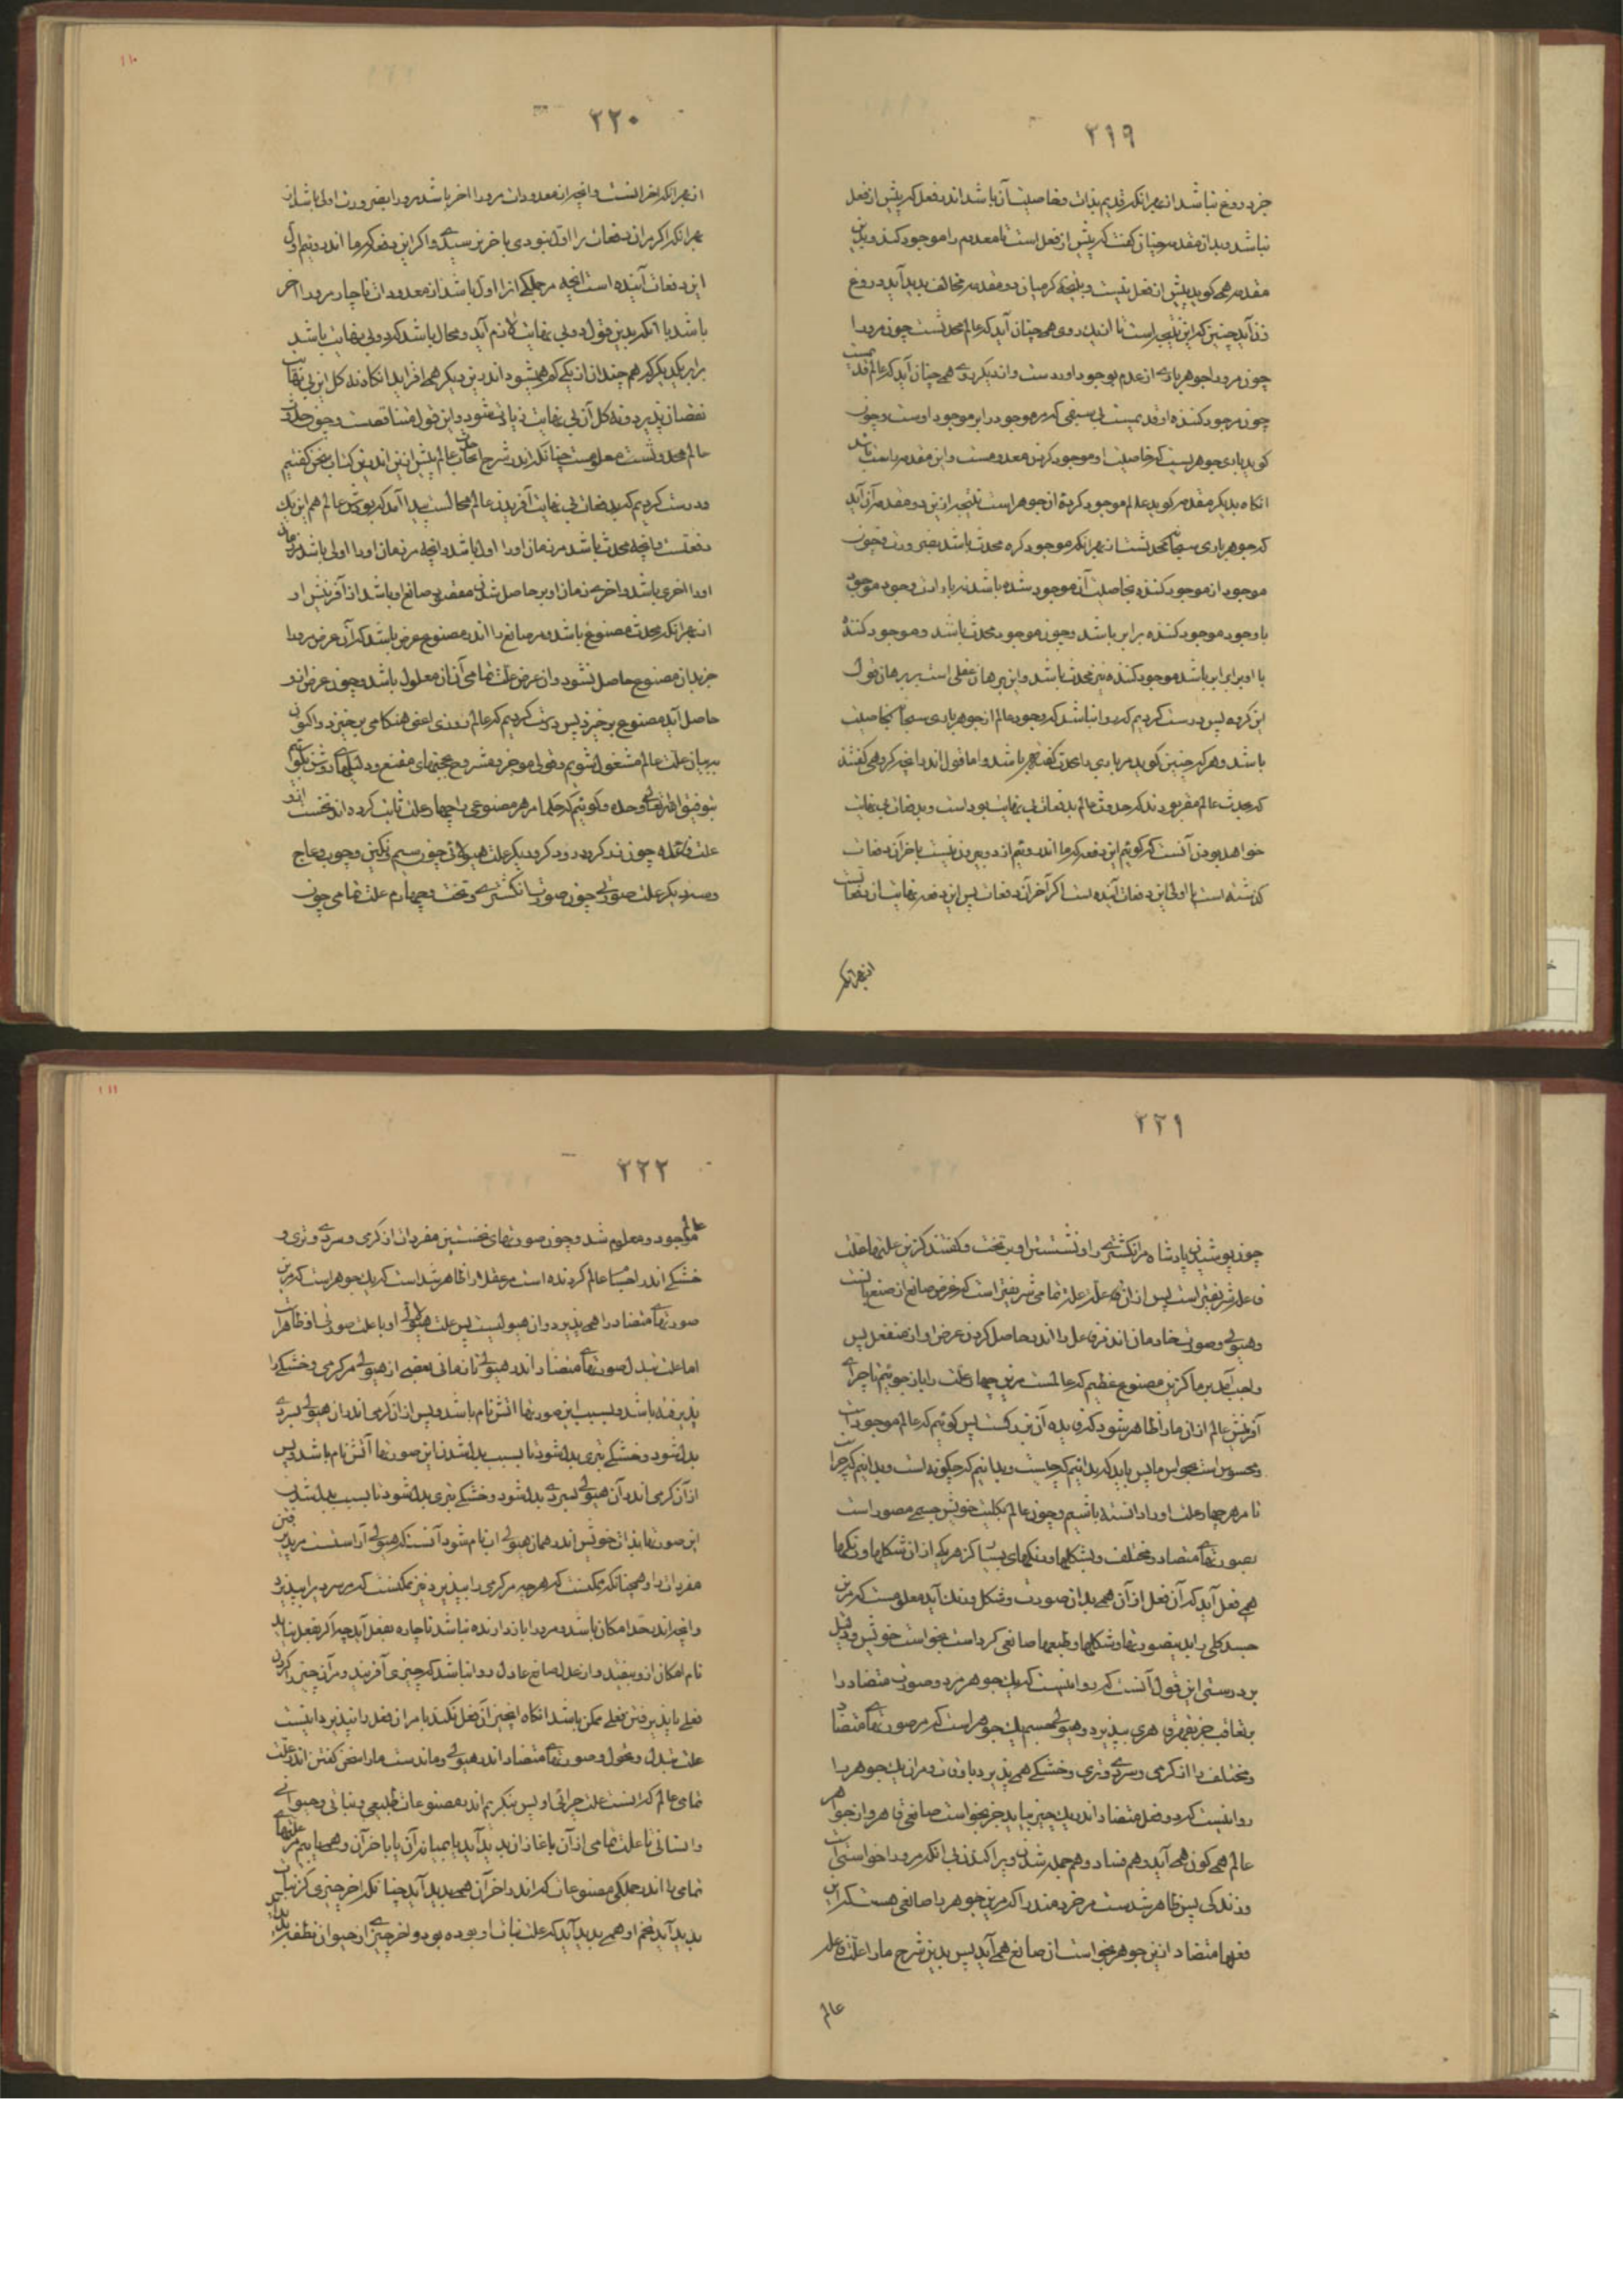 ۲۱۹
جز دروغ نباشد از بهر آنکه قدیم بذات و خاصیت آن باشد اندر فعل که پیش از فعل
نباشد و بداز مقدمه چنان گفت که پیش از فعل است تا معدوم را موجود کند و بدین
مقدمه همی کوید پیش از فعل نیست و نتیجه که میان دو مقدمه مخالف بدید آید دروغ
زن آید چنین که این نتیجه است تا از یک روی همی چنان آید که عالم محدثست چون مر ورا
چون مر ورا جوهر باری از عدم بوجود آوردست و از دیکر روی همی چنان آید که عالم قدیمست
چون موجود کننده او قدیمست بی سبقی که مر موجود را بر موجود اوست و چون
کوید باری جوهریست که خاصیت او موجود کردن معدومست و این مقدمه راست باشد
انکاه بدیکر مقدمه کوید عالم موجود کردهٔ آن جوهر است نتیجه از این دو مقدمه آن آید
که جوهر باری سبحانه محدثست از بهر آنکه موجود کرده محدث باشد بضرورت و چون
موجود از موجود کننده بخاصیت آن موجود شده باشد نه بارادت وجود موجود
با وجود موجود کننده برابر باشد و چون موجود محدث باشد و موجود کننده
با او برابر باشد موجود کننده نیز محدث باشد و این برهان عقلی است بر برهان قول
این کروه پس درست کردیم که روا نباشد که وجود عالم از جوهر باری سبحانه بخاصیت
باشد و هر که چنین کوید مر باری را محدث گفته باشد و اما قول اندر انچه کروهی گفتند
که محدث عالم مقر بودند که حدوث عالم بدفعات بی نهایت بوداست و بدفعات بی نهایت
خواهد بودن آنست که کوئیم این دفعه که ما اندروئیم از دو بیرون نیست یا خر آن دفعات
کذشته است یا اول این دفعات آینده است اکر آخر آن دفعات پس این دفعه نهایت آن دفعاتست
از بهر آنکه
۲۲۰
از بهر آنکه آخر آنست و انچه از معدودات مر ورا اخر باشد مر ورا بضرورت اولی باشد از
بهر آنکه اکر مر ان دفعات را اول نبودی باخر نرسیدی و اکر این دفعه که ما اندروئیم اول
این دفعات آینده است انچه مر جملکی انرا اول باشد از معدودات ناچار مر ورا اخر
باشد با انکه بدین قول دو بی نهایت لازم آید و محال باشد که دو بی نهایت باشد
برابر یکدیکر که هر چند از ان یکی کم همیشود اندرین دیکر همی افزاید انکاه نه کل این بی نهایت
نقصان پذیرد و نه کل آن بی نهایت زیاتی شود و این قول متناقضست و چون حدوث
عالم محدثست معلومست چنانکه اندر شرح ایجاب حدث عالم پیش ازین اندرین کتاب سخن کفتیم
و درست کردیم که بدفعات بی نهایت آفریدن عالم محالست پیدا آمد که بودش عالم هم این یک
دفعتست و انچه محدث باشد مر زمان اورا اول باشد و انچه مر زمان اورا اولی باشد مر زمان
اورا اخری باشد و اخر زمان او بر حاصل شدن مقصود صانع او باشد از آفرینش او
از بهر آنکه محدث مصنوع باشد و مر صانع را اندر مصنوع غرض باشد که آن غرض مر ورا
جز بدان مصنوع حاصل نشود و ان غرض علت تمامی آنان معلول باشد و چون غرض از او
حاصل آید مصنوع برخیزد پس درست کردیم که عالم روزی اعنی هنکامی برخیزد و اکنون
ببیان علت عالم مشغول شویم و قولی موجز و مشروح بحجتهای مقنع و دلیلهای روشن بکوئیم
بتوفیق الله تعالی وحده و کوئیم که حکما مر هر مصنوعی را چهار علت ثابت کرده اند نخست
علت فاعله چون زرکر و درودکر و دیکر علت هیولانی چون سیم و نکین و چوب و عاج
و سه دیکر علت صورتی چون صورت انکشتری و تخت و چهارم علت تمامی چون
۲۲۱
چون پوشیدن پادشاه مر انکشتری را و نشستن او بر تخت و کفتند کزین علتها علت
فاعله شریفتر است پس از ان فاعله علت تمامی شریفتر است که غرض صانع از صنع آنست
و هیولی و صورت خادمان اند مر فاعل را اندر حاصل کردن غرض او از منفعل پس
واجب آمد بر ما کزین مصنوع عظیم که عالمست مرین چهار علت را باز جوئیم تا چرائی
آفرینش عالم از ان مارا ظاهر شود که فایده آن بزرکست پس کوئیم که عالم موجود است
و محسوس است بحواس ما پس باید که بدانیم که چیست و بدانیم که چکونه است و بدانیم که چراست
تا مر هر چهار علت اورا دانسته باشیم و چون عالم بکلیت خویش جسمی مصور است
بصورتهای متضاد و مختلف و بشکلها و رنکهای بسیار کز هر یکی از ان شکلها و رنکها
همی فعل آید که آن فعل از آن همی بدان صورت و شکل و رنک آید معلومست که مرین
جسد کلی را بدین صورتها و شکلها و طبعها صانعی کرداست بخواست خویش و دلیل
بر درستی این قول آنست که روا نیست که یک جوهر مر دو صورت متضاد را
بتعاقب جز بقهر قاهری بپذیرد و هیولی جسم یک جوهر است که مر صورتهای متضاد
و مختلف را از کرمی و سردی و تری و خشکی همی پذیرد باوقات و مر ان یک جوهر را
روا نیست که دو فعل متضاد اندر یک چیز بیاید جز بخواست صانعی قاهر و از جواهر
عالم همی کون همی آید و هم فساد و هم جمله شدن و پراکندن بی انکه مر ورا خواستی است
و زندکی پس ظاهر شدست مر خردمند را که مرین جوهر را صانعی هست که از این
فعلها متضاد ازین جوهر بخواست ان صانع همی آید پس بدین شرح مارا علت فاعله
عالم
۲۲۲
عالم موجود و معلوم شد و چون صورتهای نخستین مفردات از کرمی و سردی و تری و
خشکی اندر اجسام عالم کردنده است مر عقل را ظاهر شداست که یک جوهر است که مرین
صورتهای متضاد را همی پذیرد و ان هیولیست پس علت هیولی او با علت صورتی او ظاهر است
اما علت تبدل صورتهای متضاد اندر هیولی تا زمانی بعضی از هیولی مر کرمی و خشکی را
پذیرفته باشد و بسبب این صورتها اتش نام باشد و پس از ان کرمی اندر ان هیولی بسردی
بدل شود و خشکی بتری بدل شود تا بسبب بدل شدن این صورتها آتش نام باشد و پس
از آن کرمی اندر آن هیولی بسردی بدل شود و خشکی بتری بدل شود تا بسبب بدل شدن
این صورتها بذات خویش اندر همان هیولی اب نام شود آنست که هیولی آراستست مر پذیرفتن
مفردات را و همچنانکه ممکنست که هر چه مر کرمی را بپذیرد نیز ممکنست که مر سردی را بپذیرد
و انچه اندر حد امکان باشد و مر ورا باز دارنده نباشد ناچاره بفعل آید چه اکر بفعل نیاید
نام امکان از و بیفتد و از عدل صانع عادل روا نباشد که چیزی آفریند و مر آن چیز را کردن
فعلی یا پذیرفتن فعلی ممکن باشد انکاه انچیز آن فعل نکند یا مر ان فعل را نپذیرد اینست
علت تبدل و تحول صورتهای متضاد اندر هیولی و ماندست مارا سخن کفتن اندر علت
تمامی عالم که آنست علت چرائی او پس بنکریم اندر مصنوعات طبیعی و نباتی و حیوانی
و انسانی تا علت تمامی از آن باغاز ان بدید آید یا بمیانه آن یا باخر آن و همی یابیم مر علتهای
تمامی را اندر جملکی مصنوعات که اندر اخر آن همی بدید آید چنانکه اخر چیزی کز نبات
بدید آید تخم او همی بدید آید که علت نبات او بوده بود و اخر چیزی از حیوان نطفه بدید آید